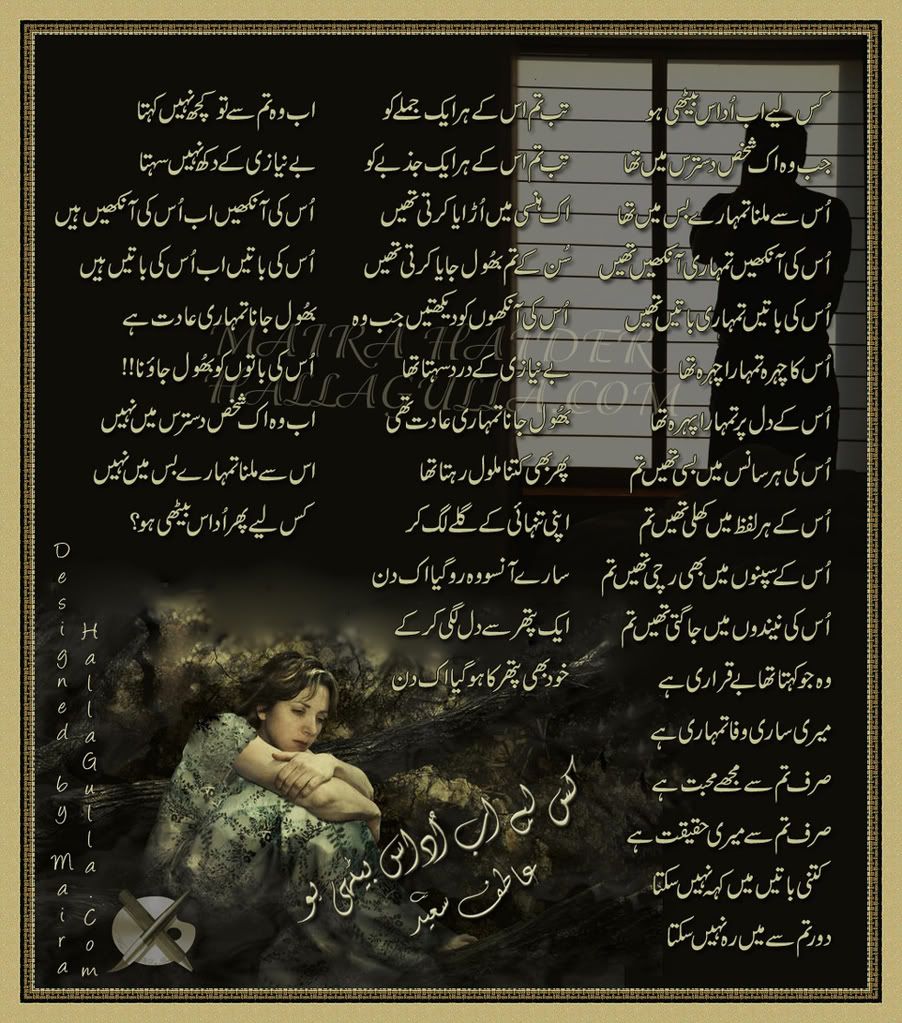 کس لیے اب اُداس بیٹھی ہو
جب وہ اک شخص دسترس میں تھا
اُس سے ملنا تمہارے بس میں تھا
اُس کی آنکھیں تمہاری آنکھیں تھیں
اُس کی باتیں تمہاری باتیں تھیں
اُس کا چہرہ تمہارا چہرہ تھا
اُس کے دل پر تمہارا پہرہ تھا
اُس کی ہر سانس میں بسی تھیں تم
اُس کے ہر لفظ میں کھلی تھیں تم
اُس کے سپنوں میں بھی رچی تھیں تم
اُس کی نیندوں میں جاگتی تھیں تم
وہ جو کہتا تھا بے قراری ہے
میری ساری وفا تمہاری ہے
صرف تم سے مجھے محبت ہے
صرف تم سے میری حقیقت ہے
کتنی باتیں میں کہہ نہیں سکتا
دور تم سے میں رہ نہیں سکتا
تب تم اس کے ہر ایک جملے کو
تب تم اس کے ہر ایک جذبے کو
اک ہنسی میں اُڑایا کرتی تھیں
سُن کے تم بھُول جایا کرتی تھیں
اُس کی آنکھوں کو دیکھتیں جب وہ
بے نیازی کے درد سہتا تھا
بھُول جانا تمہاری عادت تھی
پھر بھی کتنا ملول رہتا تھا
اپنی تنہائی کے گلے لگ کر
سارے آنسو وہ رو گیا اک دن
ایک پتھر سے دل لگی کر کے
خود بھی پتھر کا ہو گیا اک دن
اب وہ تم سے تو کچھ نہیں کہتا
بے نیازی کے دکھ نہیں سہتا
اُس کی آنکھیں اب اُس کی آنکھیں ہیں
اُس کی باتیں اب اُس کی باتیں ہیں
بھُول جانا تمہاری عادت ہے
اُس کی باتوں کو بھُول جاؤ نا!!
اب وہ اک شخص دسترس میں نہیں
اس سے ملنا تمہارے بس میں نہیں
کس لیے پھر اُداس بیٹھی ہو؟
کس لیے اب اُداس بیٹھی ہو
عاطف سعید
MAIRA HAIDER
HALLAGULLA.COM
Designed by Maira
HallaGulla.Com